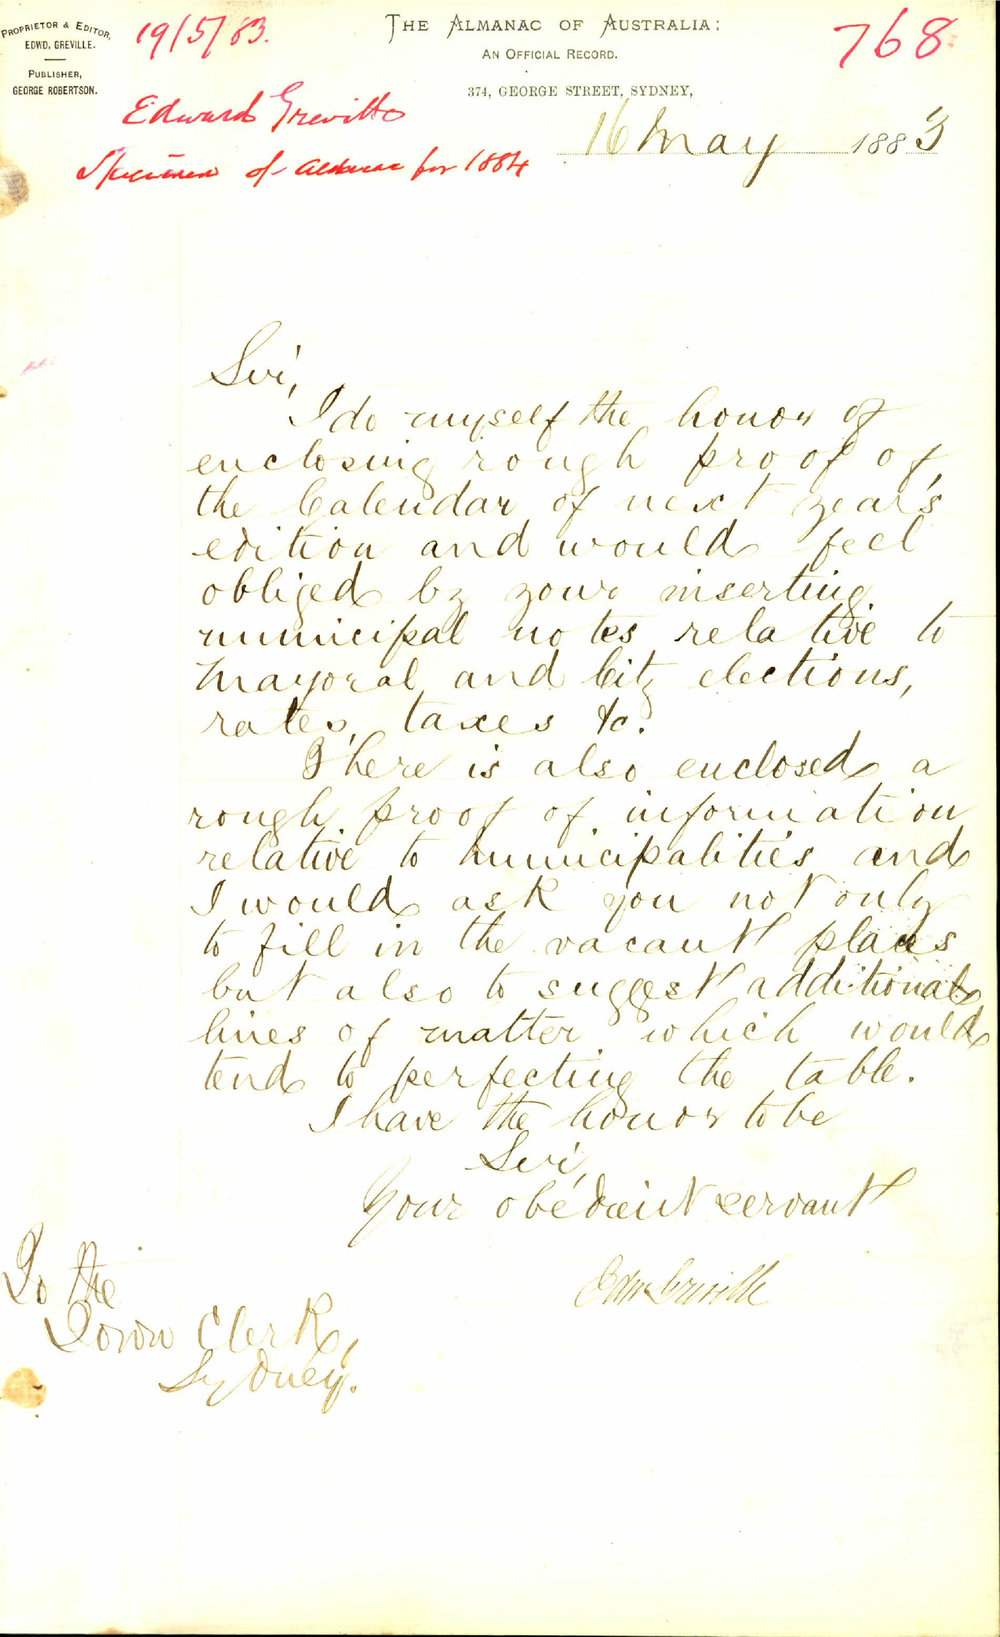 PROPRIETOR & EDITOR,
EDWD. GREVILLE.
PUBLISHER,
GEORGE ROBERTSON.
19/5/83.
THE ALMANAC OF AUSTRALIA:
AN OFFICIAL RECORD.
374, GEORGE STREET, SYDNEY,
768
Edward Greville
Specimen of Almanac for 1884
16 May 1883
Sir,
I do myself the honor of
enclosing rough proof of
the Calendar of next year's
edition and would feel
obliged by your inserting
municipal notes relative to
Mayoral and City elections,
rates, taxes &c.
There is also enclosed a
rough proof of information
relative to municipalities and
I would ask you not only
to fill in the vacant places
but also to suggest additional
lines of matter which would
tend to perfecting the table.
I have the honor to be
Sir,
Your obedient servant
Edw Greville
To the
Town Clerk,
Sydney.